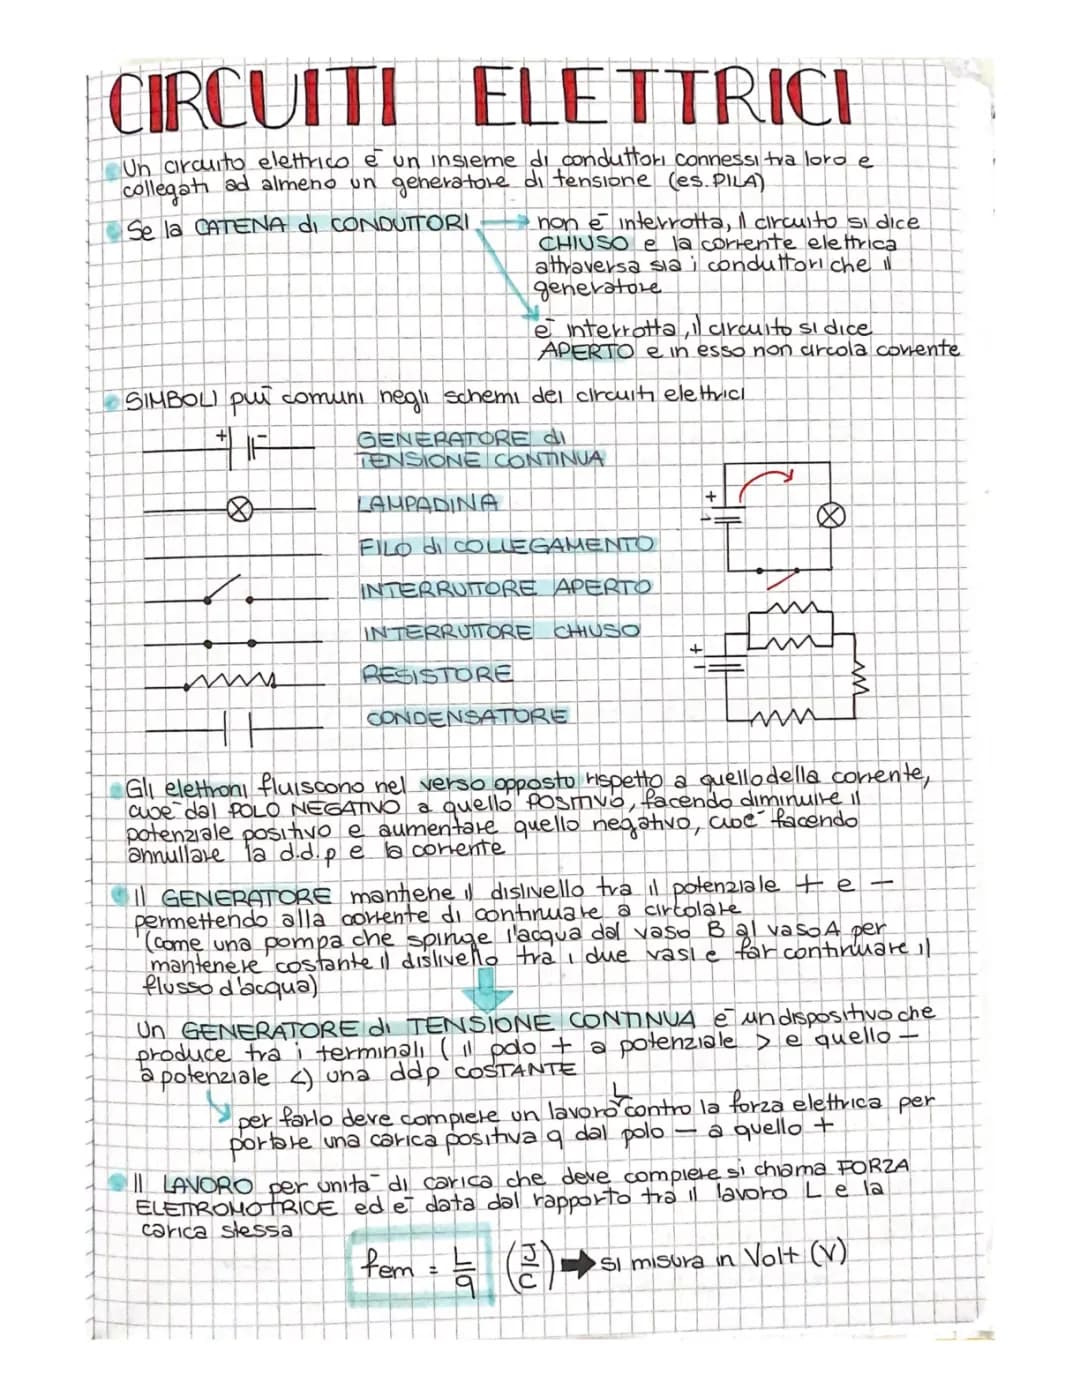 CIRCUITI ELETTRICI
Un circuito elettrico è un insieme di conduttori connessi tra loro e
collegati ad almeno un generatore di tensione (es. PILA)
Se la CATENA di CONDUTTORI
non è interrotta, il circuito si dice
CHIUSO e la corrente elettrica
attraversa sia i conduttori che il
generatore
è interrotta, il circuito si dice
APERTO e in esso non circola corrente
SIMBOLI pui comuni negli schemi dei circuiti elettrici
+ -
GENERATORE di
TENSIONE CONTINUA
LAMPADINA
FILO di COLLEGAMENTO
INTERRUTTORE APERTO
INTERRUTTORE CHIUSO
RESISTORE
CONDENSATORE
+
-
+
-
Gli elettroni fluiscono nel verso opposto rispetto a quello della corrente,
cioè dal POLO NEGATIVO a quello POSITIVO, facendo diminuire il
potenziale positivo e aumentare quello negativo, cioè facendo
annullare la d.d.p e la corrente
Il GENERATORE mantiene il dislivello tra il potenziale + e -
permettendo alla corrente di continuare a circolare
(come una pompa che spinge l'acqua dal vaso B al vaso A per
mantenere costante il dislivello tra i due vasi e far continuare il
flusso d'acqua)
Un GENERATORE di TENSIONE CONTINUA è un dispositivo che
produce tra i terminali ( il polo + a potenziale > e quello -
a potenziale <) una ddp COSTANTE
L
per farlo deve compiere un lavoro contro la forza elettrica per
portare una carica positiva q dal polo - a quello +
Il LAVORO per unità di carica che deve compiere si chiama FORZA
ELETTROMOTRICE ed è data dal rapporto tra il lavoro L e la
carica stessa
fem = L/q (J/C) ➡ si misura in Volt (V)